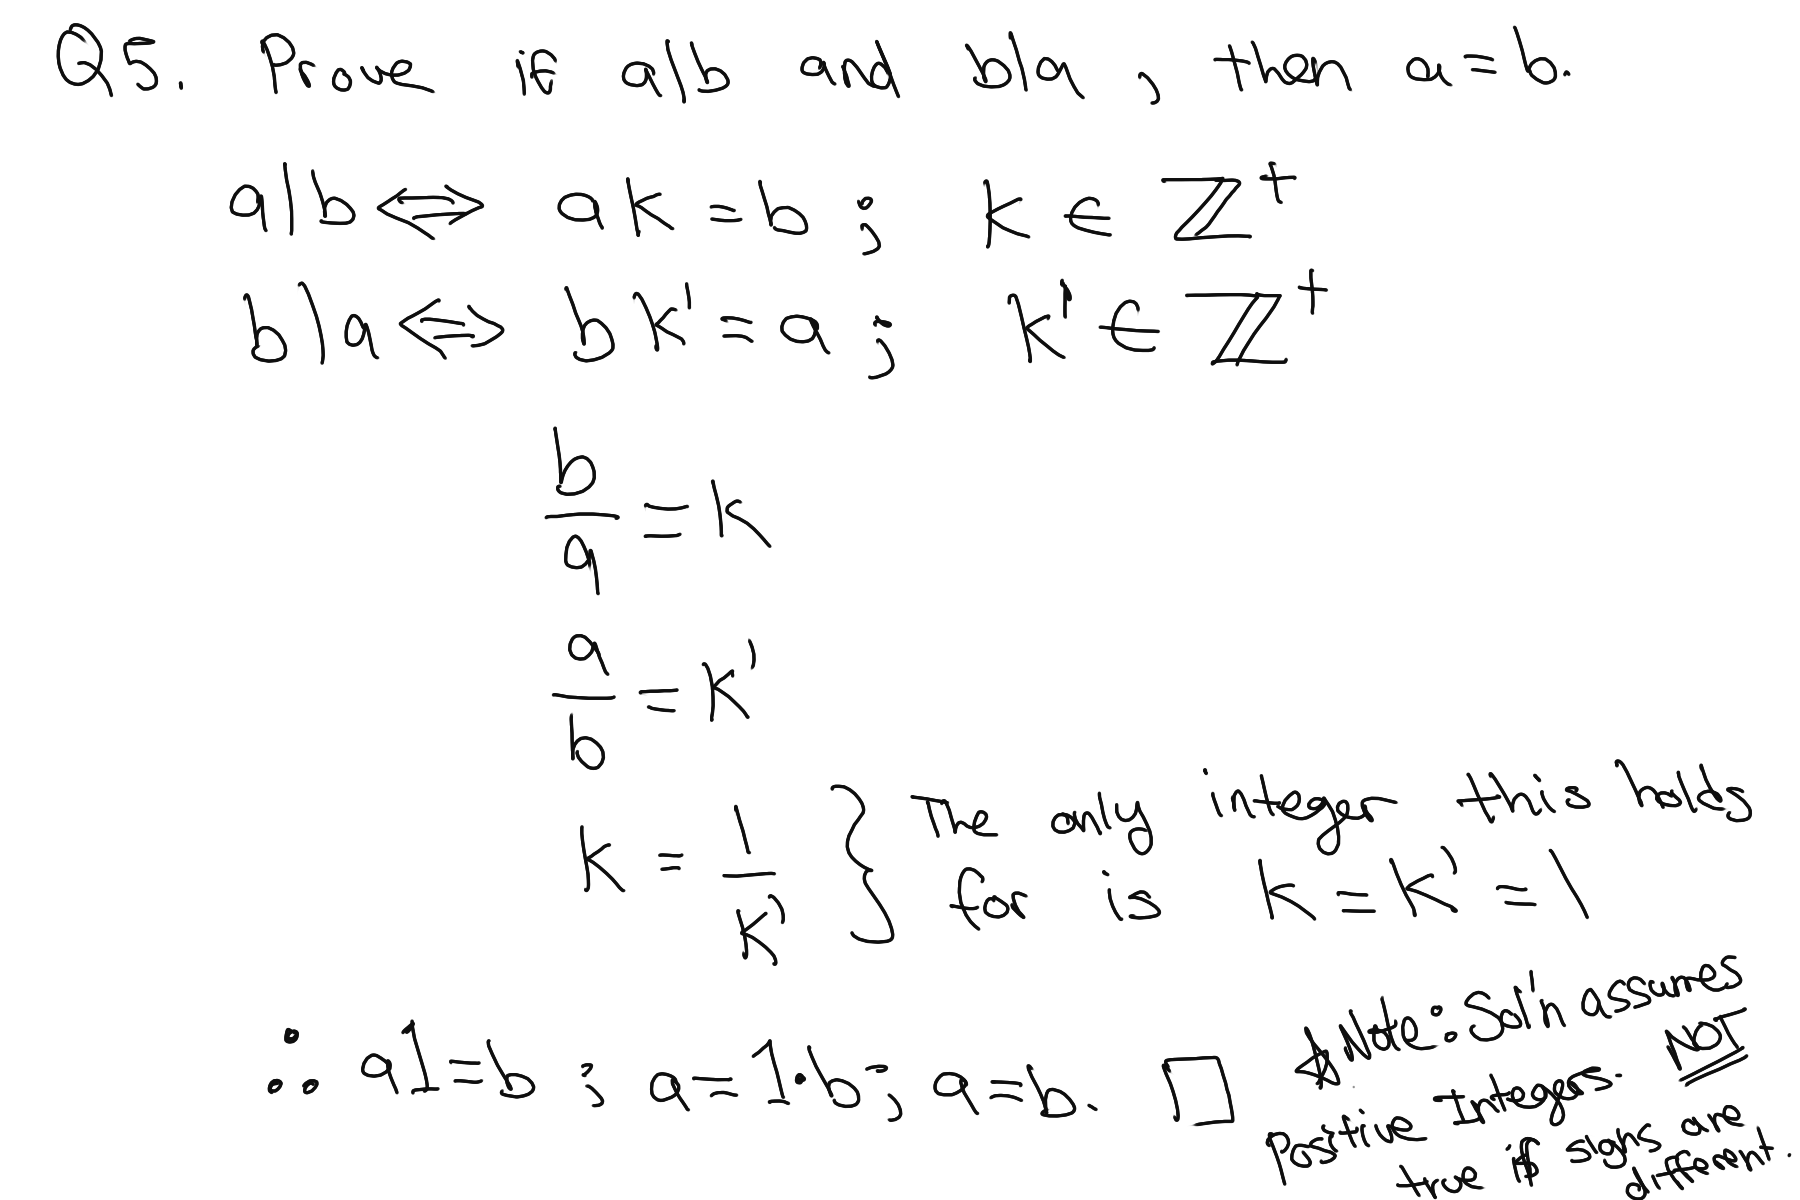 Q5. Prove if a|b and b|a, then a=b.
a|b ⟺ ak = b; k ∈ ℤ⁺
b|a ⟺ bk' = a; k' ∈ ℤ⁺
b/a = k
a/b = k'
k = 1/k' } The only integer this holds
for is k = k' = 1
∴ a1=b; a=1·b; a=b. □
☆Note: Sol'n assumes
Positive Integers. NOT
true if signs are
different.